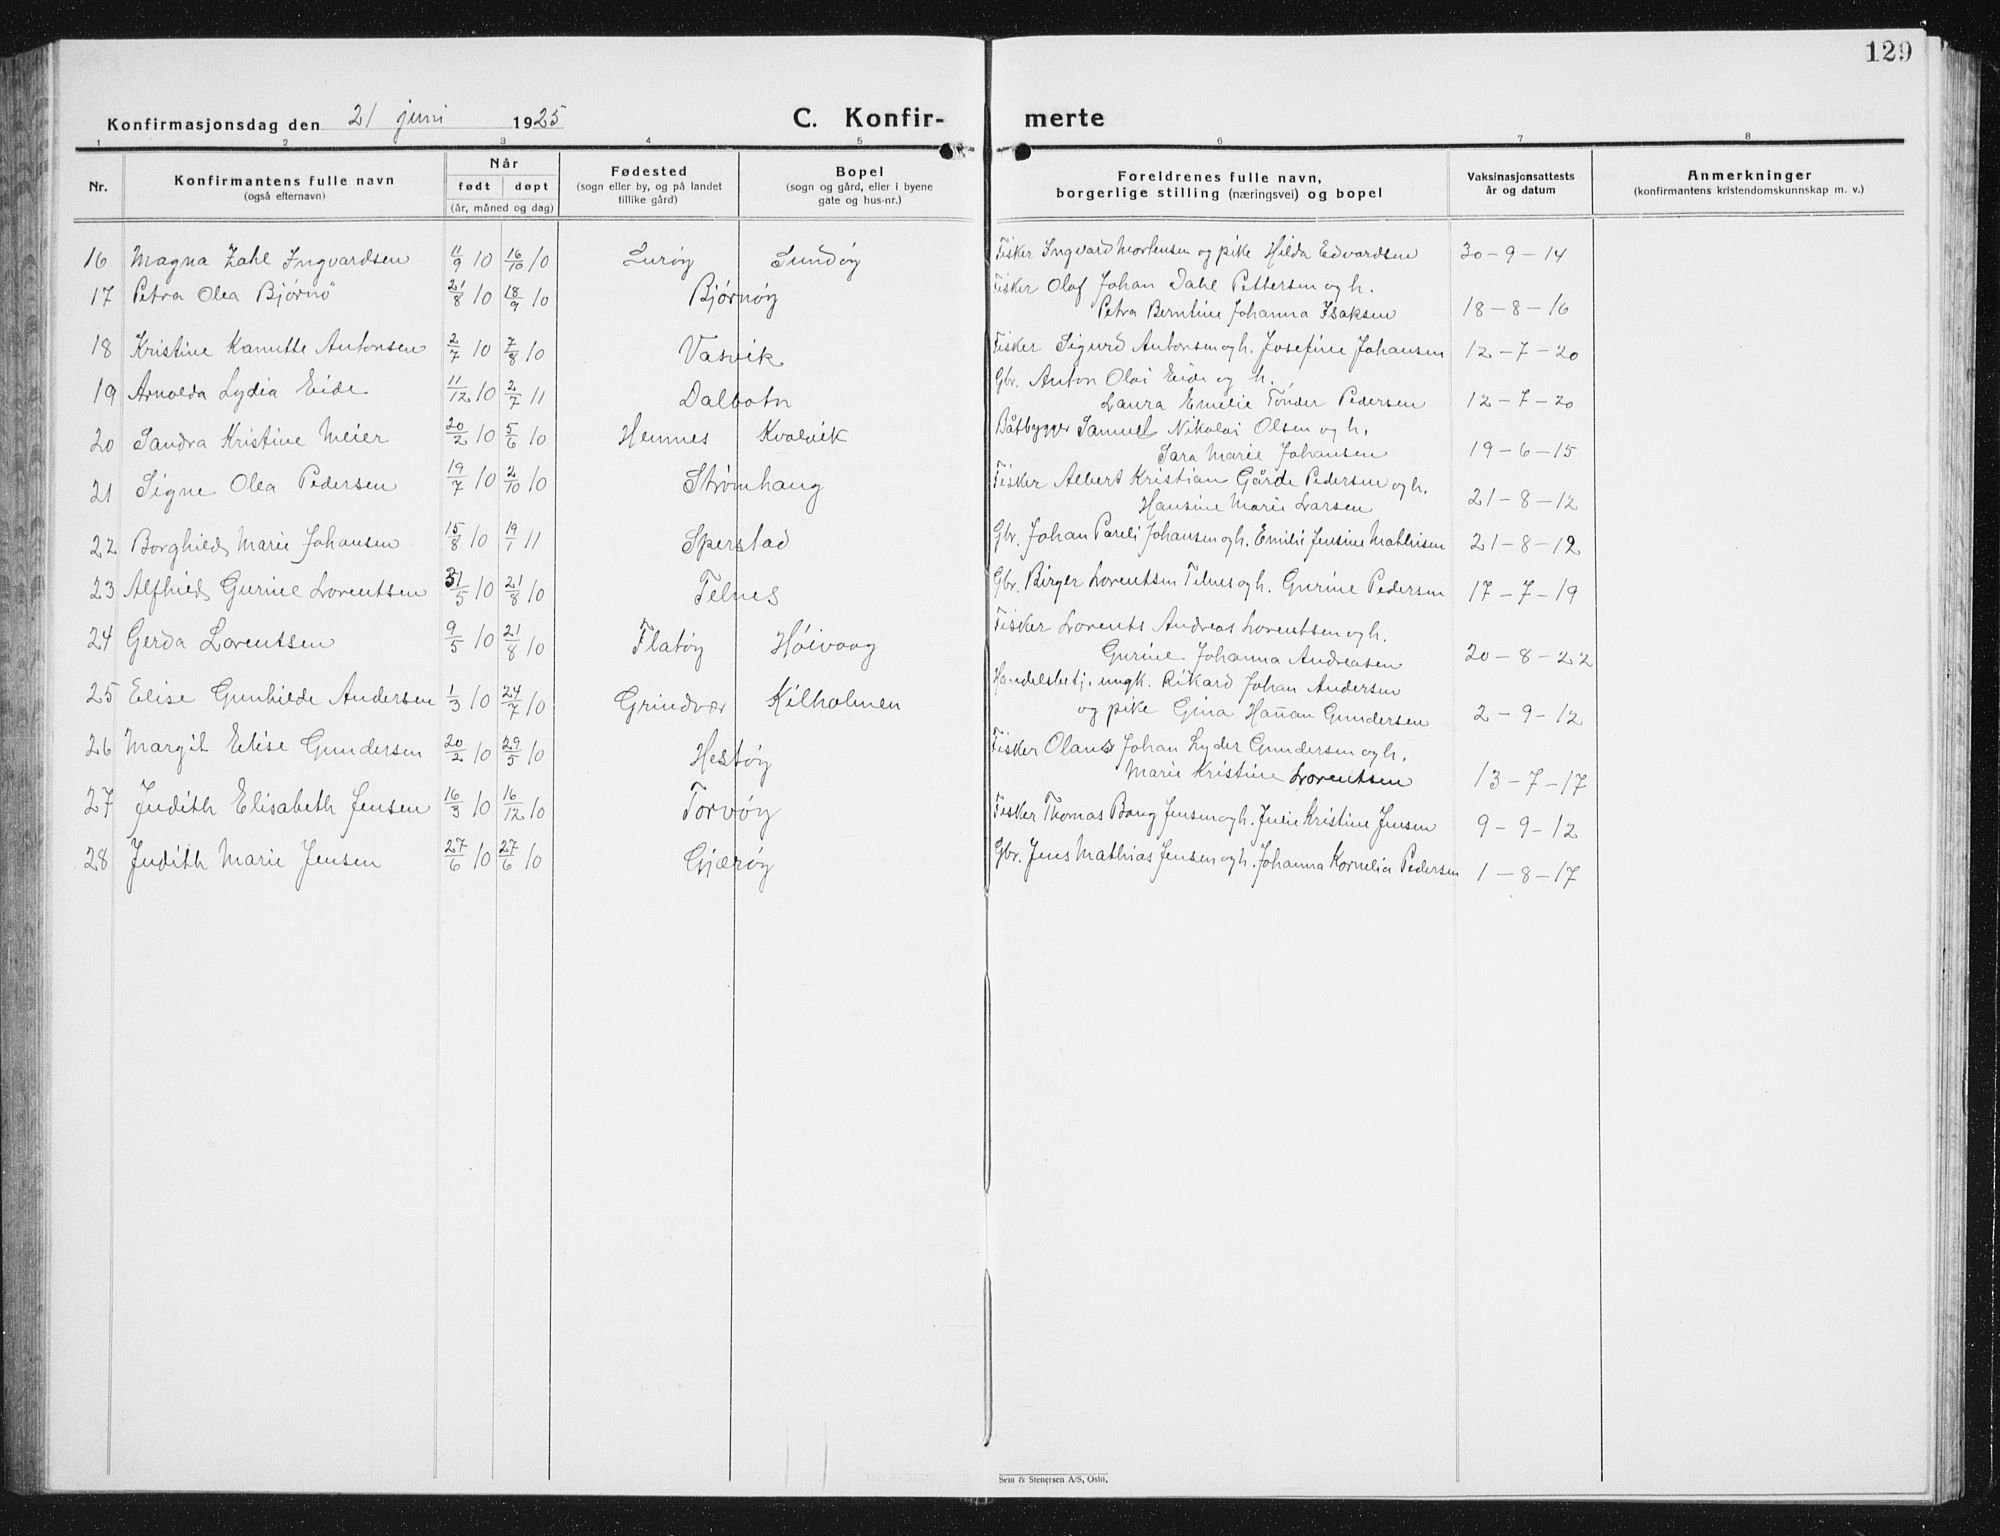 129
Konfirmasjonsdag den 21 juni 1925 C. Konfir- merte
1 2 3 4 5 6 7 8
Nr. Konfirmantens fulle navn (også efternavn) Når født døpt (år, måned og dag) Fødested (sogn eller by, og på landet tillike gård) Bopel (sogn og gård, eller i byene gate og hus-nr.) Foreldrenes fulle navn, borgerlige stilling (næringsvei) og bopel Vaksinasjonsattests år og datum Anmerkninger (konfirmantens kristendomskunnskap m. v.)
16 Magna Zahl Ingvardsen 11/9 10 16/10 10 Lurøy Sundøy Fisker Ingvard Mortensen og pike Hilda Edvardsen 30-9-14
17 Petra Olea Bjørnø 21/8 10 18/9 10 Bjørnøy Fisker Olaf Johan Dahl Pettersen og h.
Petra Berntine Johanna Isaksen 18-8-16
18 Kristine Kanutte Antonsen 2/7 10 7/8 10 Vasvik Fisker Sigurd Antonsen og h. Josefine Johansen 12-7-20
19 Arnolda Lydia Eide 11/12 10 2/7 11 Dalbotn Gbr. Anton Olai Eide og h.
Laura Emelie Tønder Pedersen 12-7-20
20 Sandra Kristine Meier 20/2 10 5/6 10 Hemnes Kvalvik Båtbygger Samuel Nikolai Olsen og h.
Sara Marie Johansen 19-6-15
21 Signe Olea Pedersen 19/7 10 2/10 10 Strømhaug Fisker Albert Kristian Gårde Pedersen og h.
Hansine Marie Larsen 21-8-12
22 Borghild Marie Johansen 15/8 10 19/1 11 Sperstad Gbr. Johan Pareli Johansen og h. Emilie Jensine Mathisen 21-8-12
23 Alfhild Gurine Lorentsen 31/5 10 21/8 10 Telnes Gbr. Birger Lorentsen Telnes og h. Gurine Pedersen 17-7-19
24 Gerda Lorentssen 9/5 10 21/8 10 Flatøy Høivaag Fisker Lorents Andreas Lorentsen og h.
Gurine Johanna Andreasen 20-8-22
25 Elise Gunhilde Andersen 1/3 10 24/7 10 Grindvær Kilholmen Handelsbetj. ungk. Rikard Johan Andersen
og pike Gina Hannan Gundersen 2-9-12
26 Margit Elise Gundersen 20/2 10 29/5 10 Hestøy Fisker Olaus Johan Lyder Gundersen og h.
Marie Kristine Lorentsen 13-7-17
27 Judith Elisabeth Jensen 16/3 10 16/12 10 Torvøy Fisker Thomas Bang Jensen og h. Julie Kristine Jensen 9-9-12
28 Judith Marie Jensen 27/6 10 27/6 10 Gjærøy Gbr. Jens Mathias Jensen og h. Johanna Kornelia Pedersen 1-8-17
Sem & Stenersen A/S, Oslo.